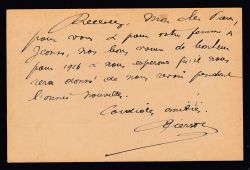 Recevez, Mon cher Pierre,
pour vous & pour votre femme &
nos bons vœux de bonheur
pour 1916 & nous esperons qu'il nous
sera donné de nous revoir pendant
l'année nouvelle.
Cordiales amitiés.